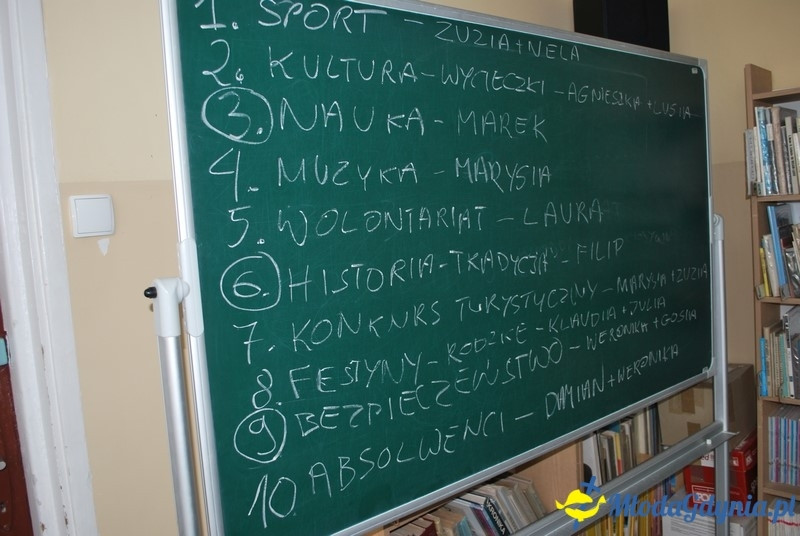 1. SPORT - ZUZIA + NELA
2. KULTURA - WYCIECZKI - AGNIESZKA + LUSIIA
3. NAUKA - MAREK
4. MUZYKA - MARYSIA
5. WOLONTARIAT - LAURA
6. HISTORIA - TRADYCJA - FILIP
7. KONKURS TURYSTYCZNY - MARYSIA + ZUZIIA
8. FESTYNY - RODZICE - KLAUDIIA + JULIA
9. BEZPIECZEŃSTWO - WERONIKA + GOSIIA
10 ABSOLWENCI - DAMIAN + WERONIKA
KRONIKA
MlodaGdynia.pl